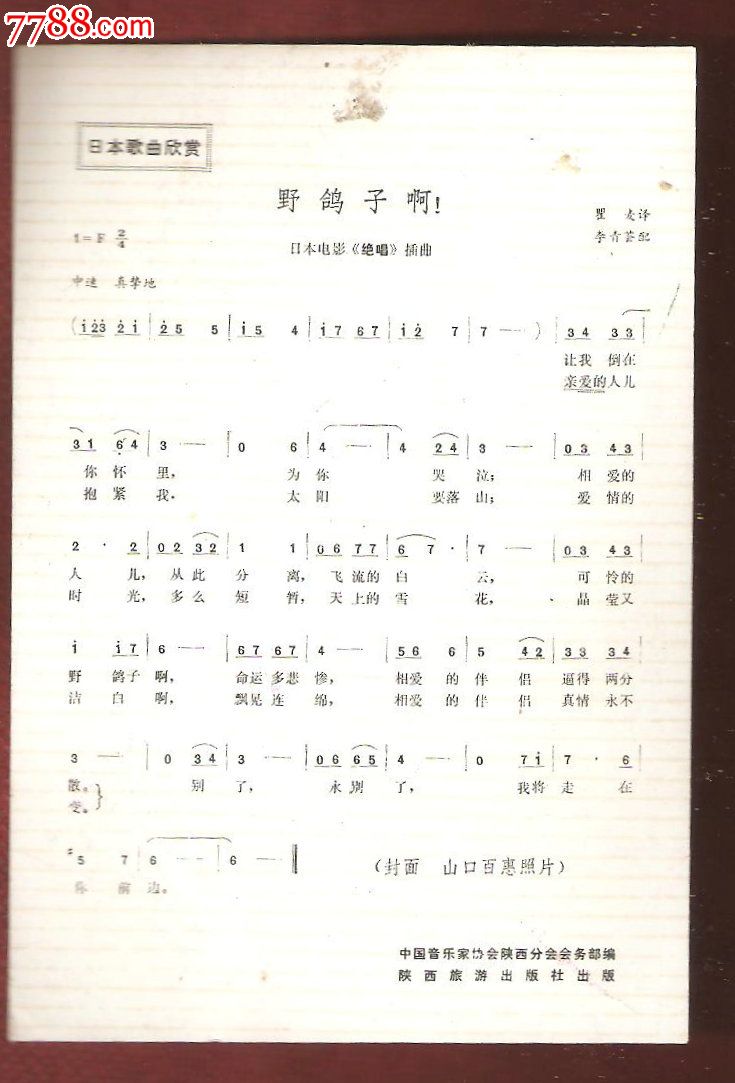 7788.com
日本歌曲欣赏
野鸽子啊!
瞿麦译
1=F 2/4
日本电影《绝唱》插曲
李青荟配
中速 真挚地
(i 2 2 3 2 i | 2 5 5 | i 5 4 | i 7 6 7 | i 2 7 | 7 — ) | 3 4 3 3 |
让我 倒在
亲爱的人儿
3 1 6 4 | 3 — | 0 6 | 4 — | 4 2 4 | 3 — | 0 3 4 3 |
你怀 里, 为你 哭泣; 相爱的
抱紧 我。 太阳 要落山; 爱情的
2 · 2 | 0 2 3 2 | 1 1 | 0 6 7 7 | 6 7 · | 7 — | 0 3 4 3 |
人 儿, 从此 分 离, 飞流的白 云, 可怜的
时 光, 多么 短 暂, 天上的雪 花, 晶莹又
i i 7 | 6 — | 6 7 6 7 | 4 — | 5 6 6 | 5 4 2 | 3 3 3 4 |
野 鸽子 啊, 命运多悲 惨, 相爱 的 伴 侣 逼得两分
洁 白 啊, 飘晃连 绵, 相爱 的 伴 侣 真情永不
3 — | 0 3 4 | 3 — | 0 6 6 5 | 4 — | 0 7 i | 7 · 6 |
散。 别 了, 永别 了, 我将 走 在
变。
#5 7 | 6 — | 6 — ‖
你 前 边。
(封面 山口百惠照片)
中国音乐家协会陕西分会会务部编
陕西旅游出版社出版